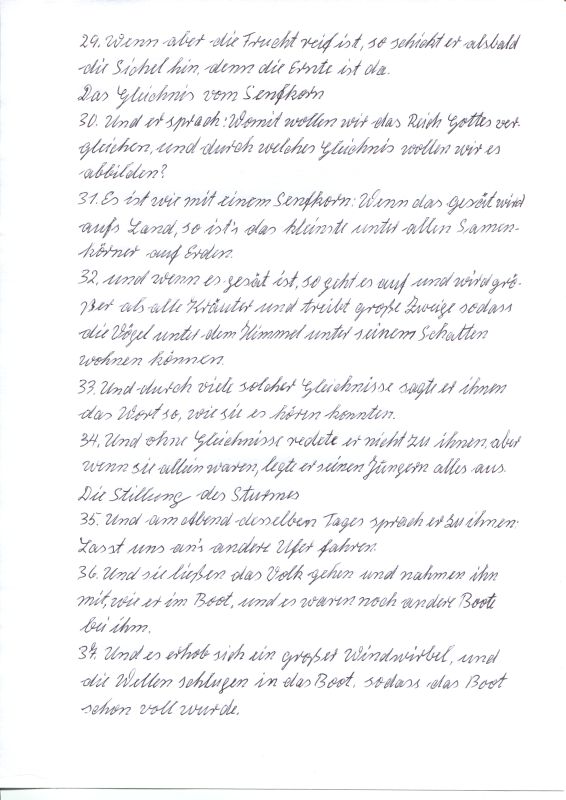 29. Wenn aber die Frucht reif ist, so schickt er alsbald
die Sichel hin, denn die Ernte ist da.
Das Gleichnis vom Senfkorn
30. Und er sprach: Womit wollen wir das Reich Gottes ver-
gleichen, und durch welches Gleichnis wollen wir es
abbilden?
31. Es ist wie mit einem Senfkorn: Wenn das gesät wird
aufs Land, so ist's das kleinste unter allen Samen-
körner auf Erden.
32. und wenn es gesät ist, so geht es auf und wird grö-
ßer als alle Kräuter und treibt große Zweige sodass
die Vögel unter dem Himmel unter seinem Schatten
wohnen können.
33. Und durch viele solcher Gleichnisse sagte er ihnen
das Wort so, wie sie es hören konnten.
34. Und ohne Gleichnisse redete er nicht zu ihnen, aber
wenn sie allein waren, legte er seinen Jüngern alles aus.
Die Stillung des Sturmes
35. Und am Abend desselben Tages sprach er zu ihnen:
Lasst uns an's andere Ufer fahren.
36. Und sie ließen das Volk gehen und nahmen ihn
mit, wie er im Boot, und es waren noch andere Boote
bei ihm.
37. Und es erhob sich ein großer Windwirbel, und
die Wellen schlugen in das Boot, sodass das Boot
schon voll wurde.